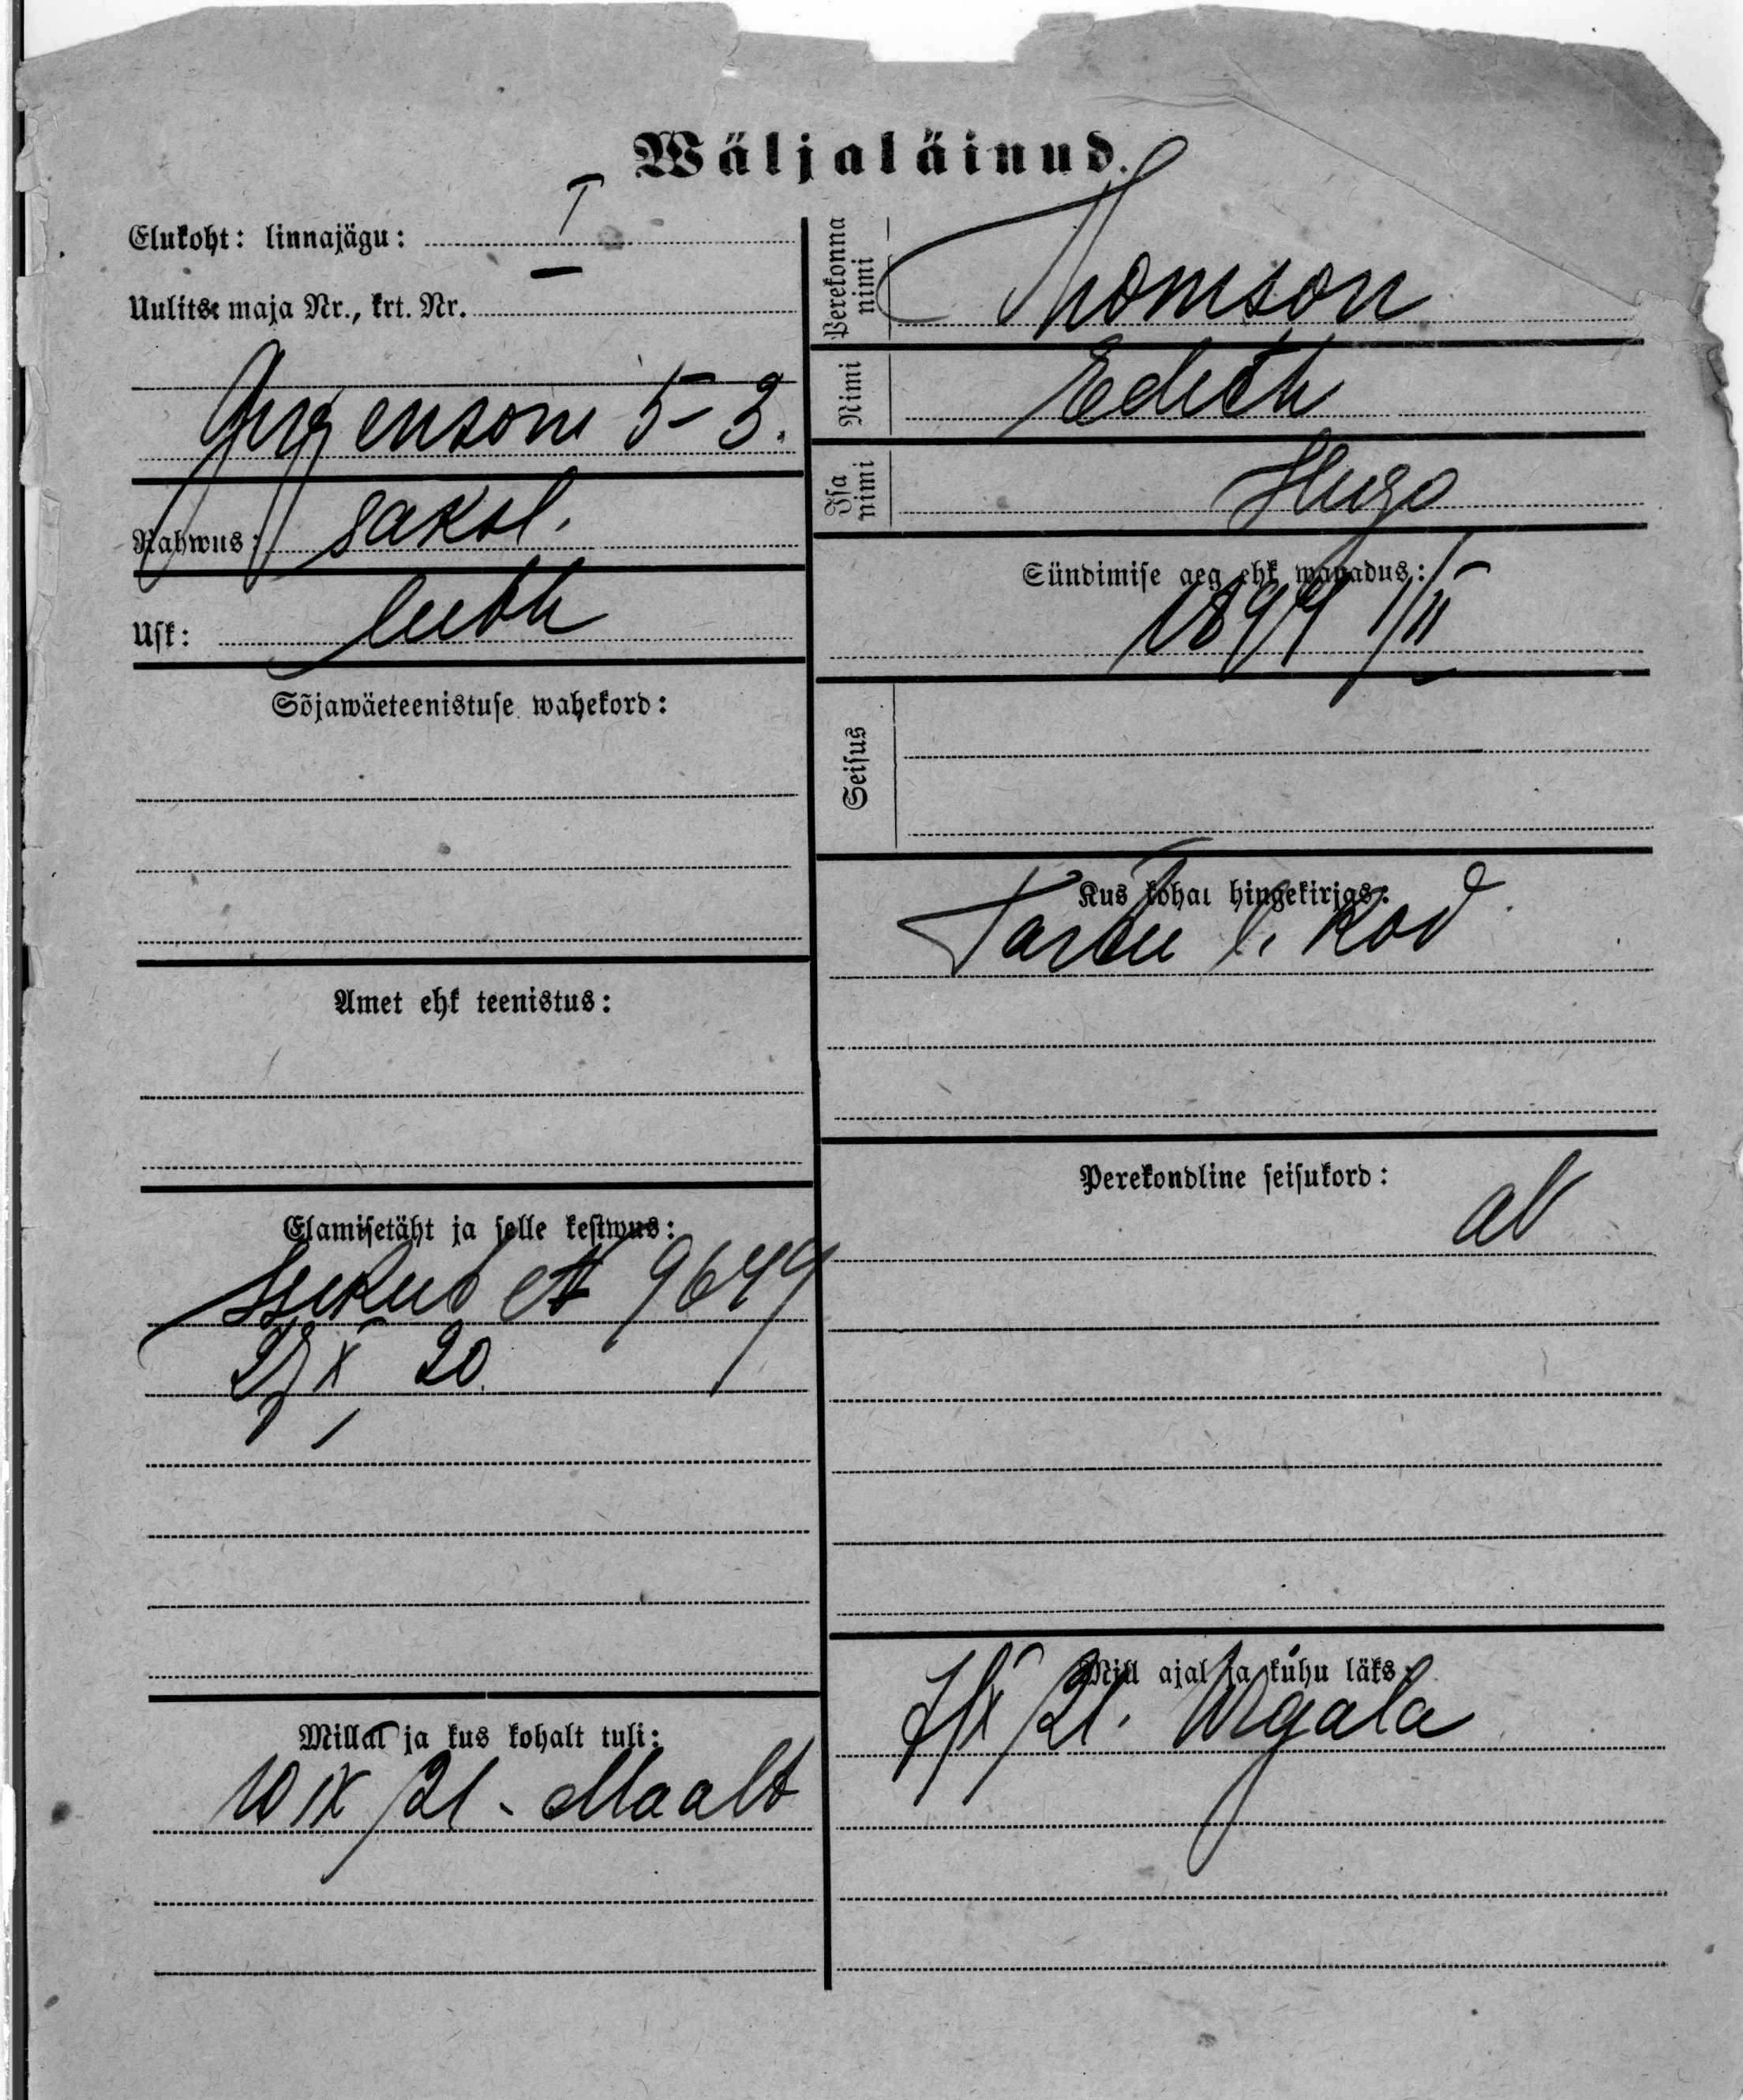 Wäljaläinud.
Elukoht: linnajägu: I
Uulitse maja Nr., krt. Nr.
Jürgensoni 5-3.
Rahwus: saksl.
Usk: luth
Sõjawäeteenistuse wahekord:
Amet ehk teenistus:
Elamisetäht ja selle kestwus:
isikut A 9649
27/X 20.
Millal ja kus kohalt tuli:
10 IX/21 - Maalt
Perekonna nimi Thomson
Nimi Edith
Isa nimi Hugo
Sündimise aeg ehk wanadus:
1899 1/II
Seisus
Kus kohal hingekirjas:
Tartu l. kod
Perekondline seisukord:
ab
Mill ajal ja kuhu läks:
/X 21. Wõgala